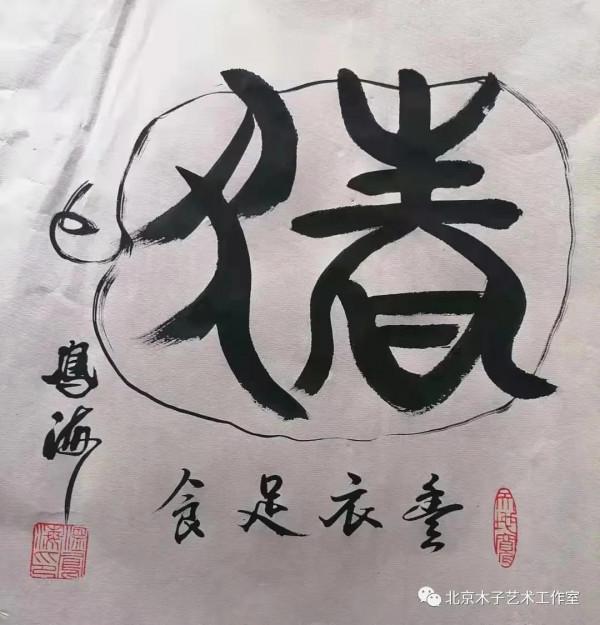 猪
豐衣足食
鳳海
北京木子艺术工作室